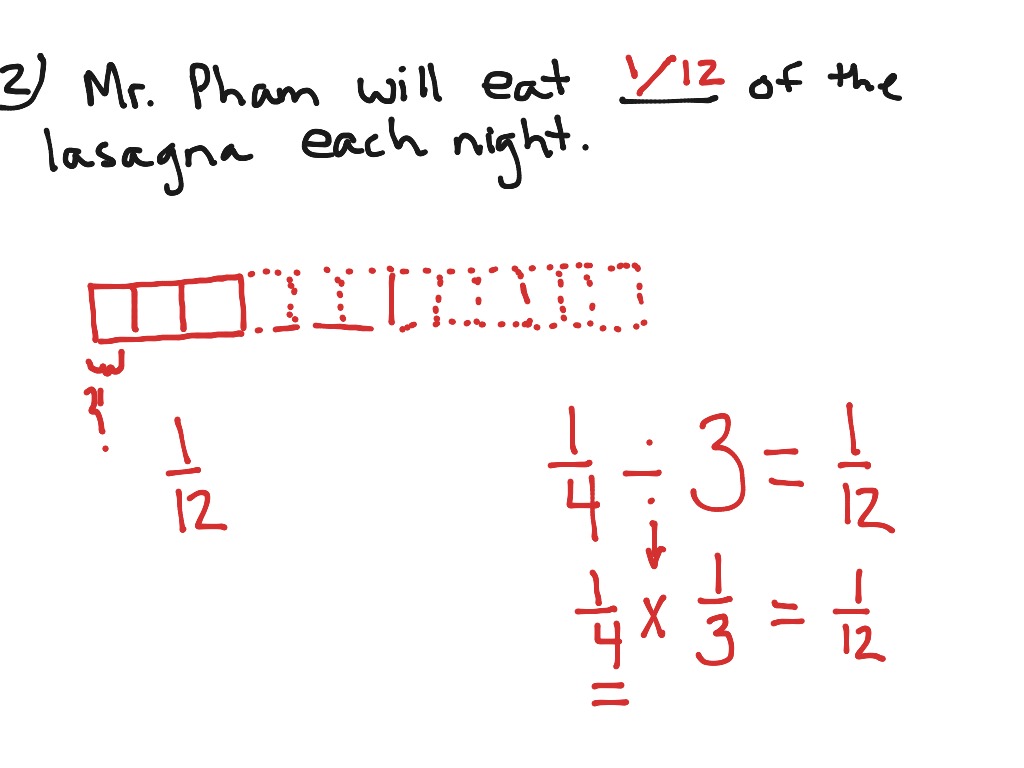 2) Mr. Pham will eat 1/12 of the
lasagna each night.
?
1/12
1/4 ÷ 3 = 1/12
1/4 x 1/3 = 1/12
=